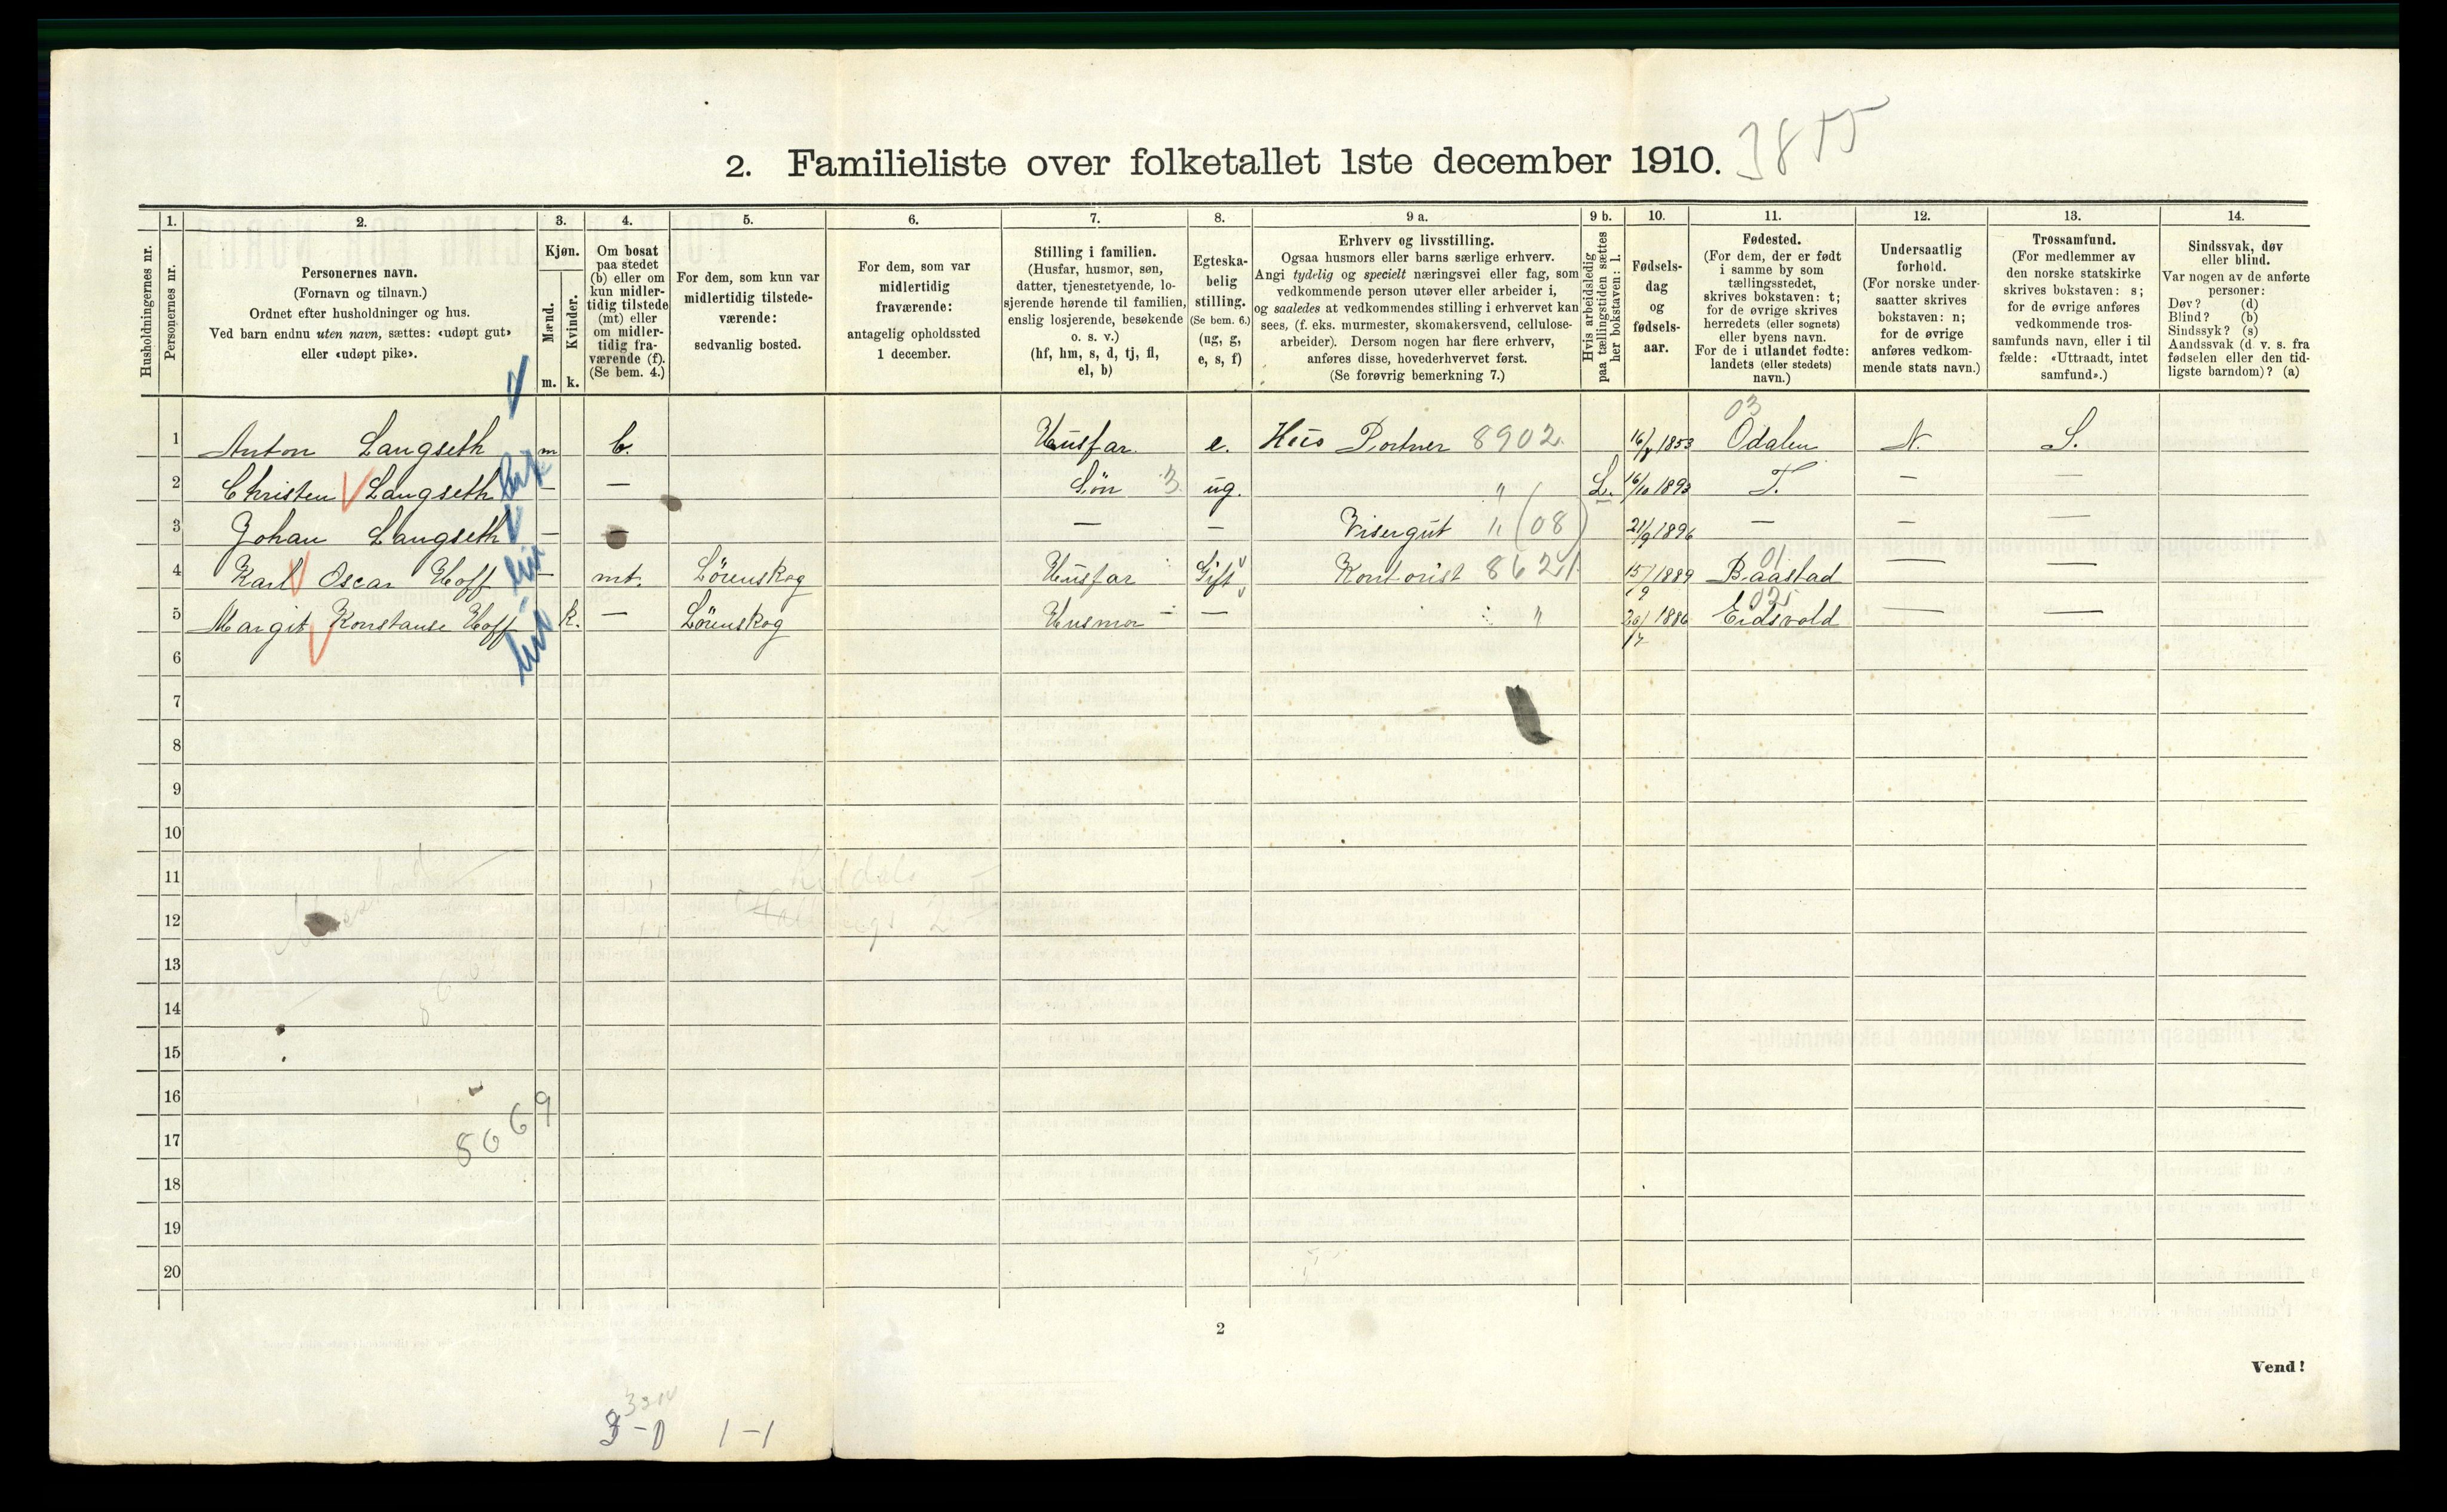 2. Familieliste over folketallet 1ste december 1910. 3855
Husholdningernes nr.
1. Personernes nr.
2. Personernes navn. (Fornavn og tilnavn.) Ordnet efter husholdninger og hus. Ved barn endnu uten navn, sættes: «udøpt gut» eller «udøpt pike».
3. Kjøn. Mænd. m. Kvinder. k.
4. Om bosat paa stedet (b) eller om kun midlertidig tilstede (mt) eller om midlertidig fraværende (f). (Se bem. 4.)
5. For dem, som kun var midlertidig tilstedeværende: sedvanlig bosted.
6. For dem, som var midlertidig fraværende: antagelig opholdssted 1 december.
7. Stilling i familien. (Husfar, husmor, søn, datter, tjenestetyende, losjerende hørende til familien, enslig losjerende, besøkende o. s. v.) (hf, hm, s, d, tj, fl, el, b)
8. Egteskabelig stilling. (Se bem. 6.) (ug, g, e, s, f)
9 a. Erhverv og livsstilling. Ogsaa husmors eller barns særlige erhverv. Angi tydelig og specielt næringsvei eller fag, som vedkommende person utøver eller arbeider i, og saaledes at vedkommendes stilling i erhvervet kan sees, (f. eks. murmester, skomakersvend, cellulosearbeider). Dersom nogen har flere erhverv, anføres disse, hovederhvervet først. (Se forøvrig bemerkning 7.)
9 b. Hvis arbeidsledig paa tællingstiden sættes her bokstaven: l.
10. Fødselsdag og fødselsaar.
11. Fødested. (For dem, der er født i samme by som tællingsstedet, skrives bokstaven: t; for de øvrige skrives herredets (eller sognets) eller byens navn. For de i utlandet fødte: landets (eller stedets) navn.)
12. Undersaatlig forhold. (For norske undersaatter skrives bokstaven: n; for de øvrige anføres vedkommende stats navn.)
13. Trossamfund. (For medlemmer av den norske statskirke skrives bokstaven: s; for de øvrige anføres vedkommende trossamfunds navn, eller i tilfælde: «Uttraadt, intet samfund».)
14. Sindssvak, døv eller blind. Var nogen av de anførte personer: Døv? (d) Blind? (b) Sindssyk? (s) Aandssvak (d. v. s. fra fødselen eller den tidligste barndom)? (a)
1 Anton Langseth m b. Husfar e. Hus Portner 8902. 1853 03 Odalen N. S.
2 Christen Langseth — — Søn 3 ug. " L. 16/10 1893 T. — —
3 Johan Langseth — — — — Visergut " (08) 21/9 1896 — — —
4 Karl Oscar Hoff — mt. Lørenskog Husfar Gift Kontorist 8621 15/9 1889 01 Baastad — —
5 Margit Konstanse Hoff k. — Lørenskog Husmor — " 1886 025 Eidsvold — —
6
7
8
9
10
11
12
13
14
15
16
17
18
19
20
2
Vend!
3-0 1-1